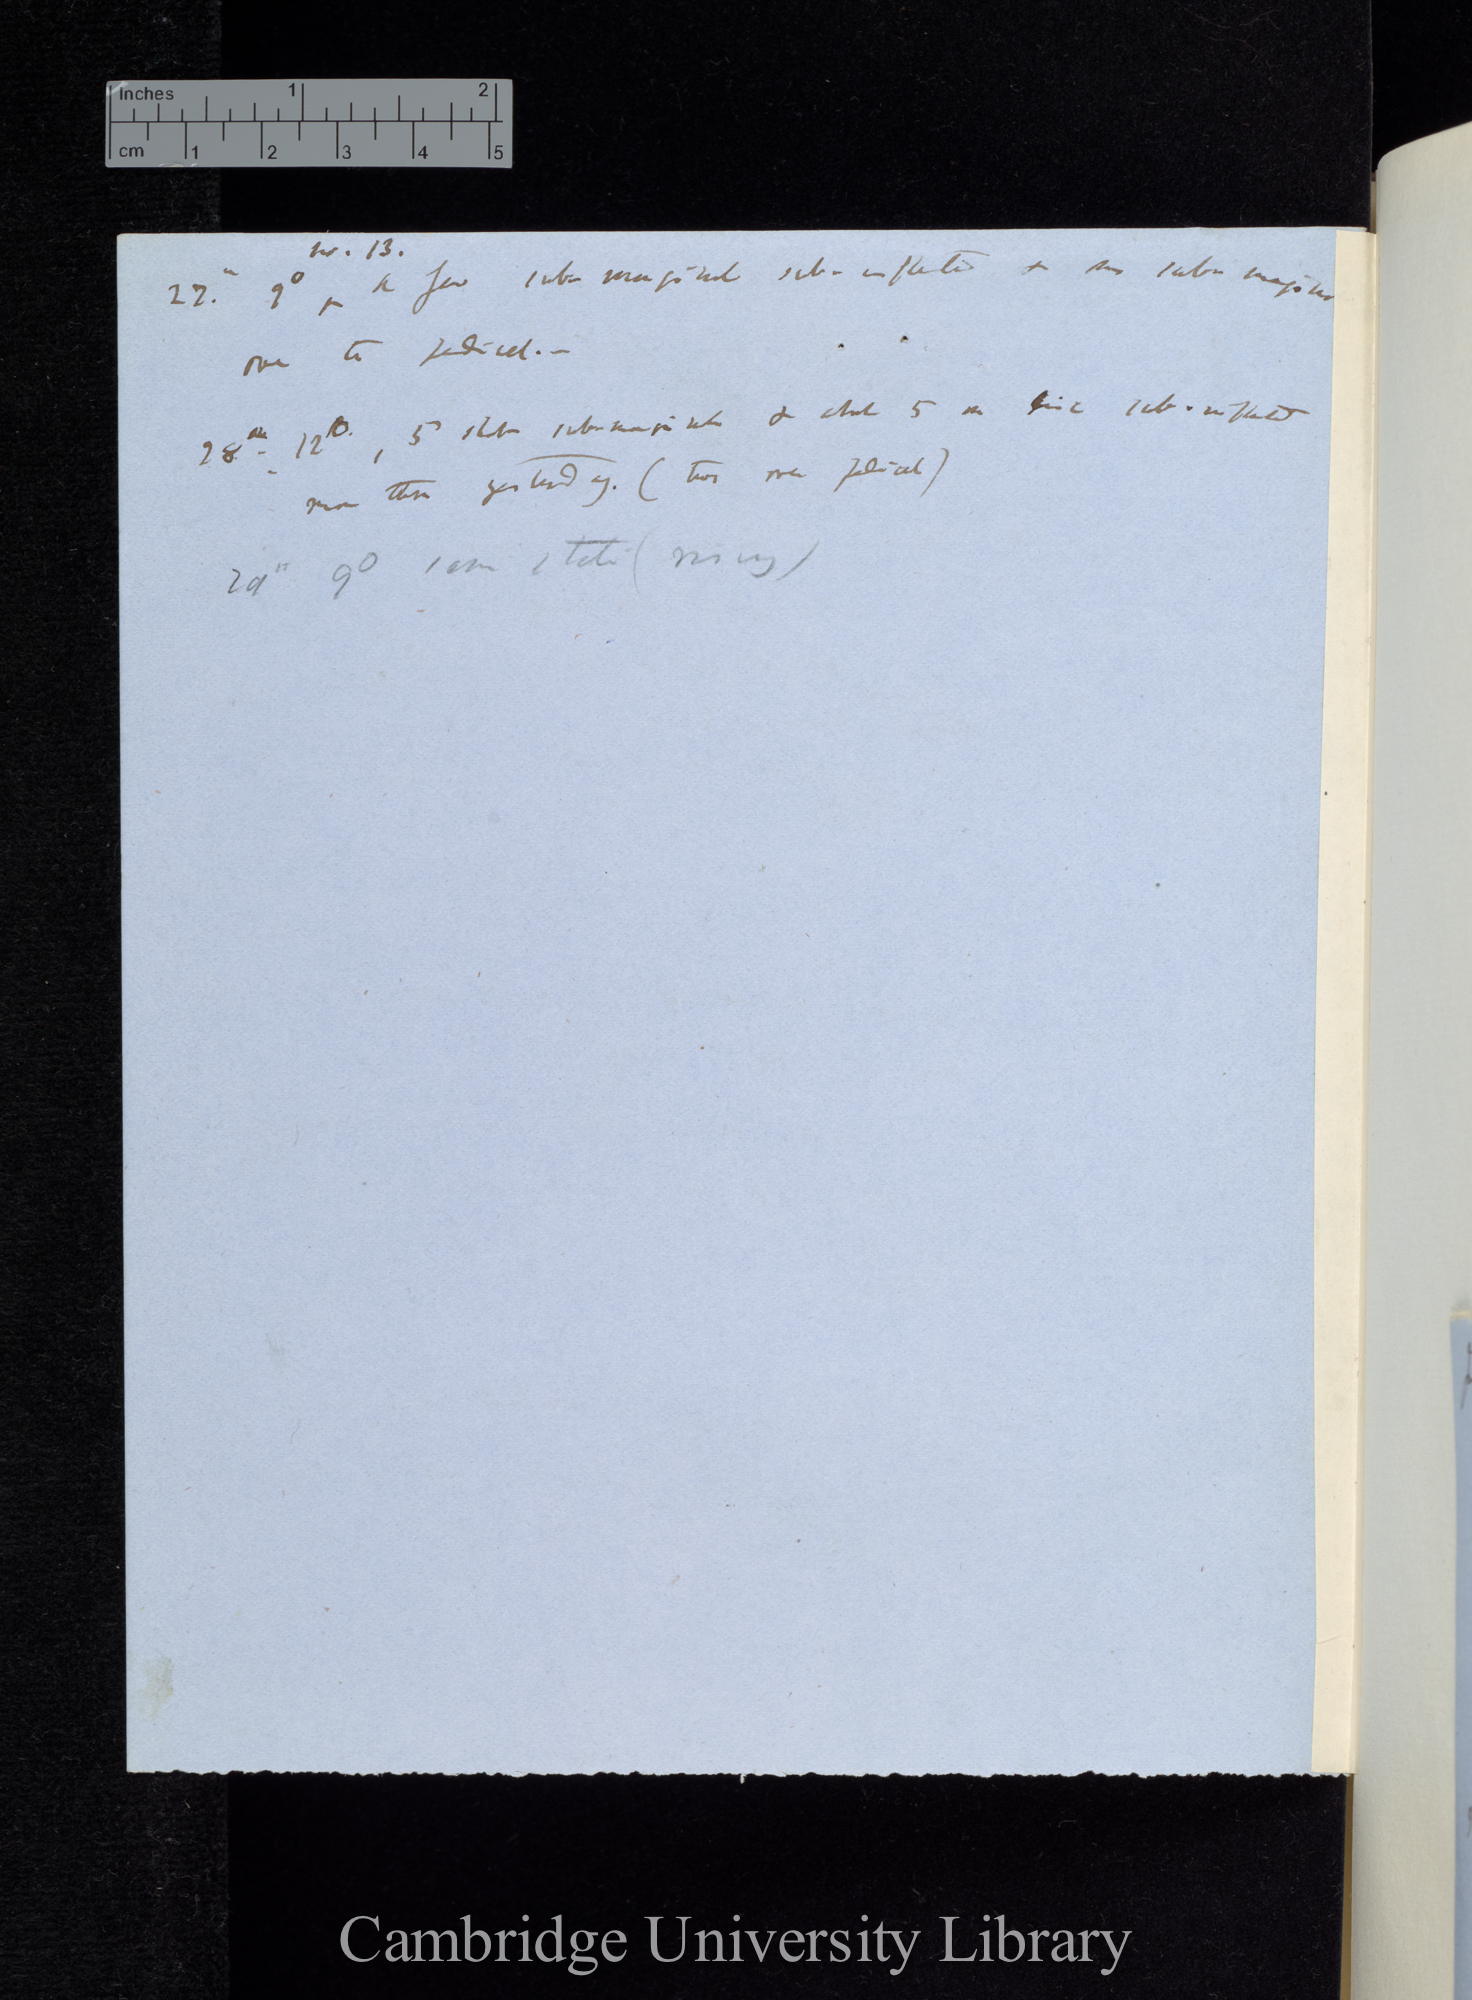 Inches 1 2
cm 1 2 3 4 5
no. 13.
27.th 9° a few sub-marginal sub-inflected & sub-marginal
over the pedicel.—
28th. 12°, 5 sub-marginal & about 5 sub-inflected
more than yesterday. (two over pedicel)
29th 9° same state (rising)
Cambridge University Library